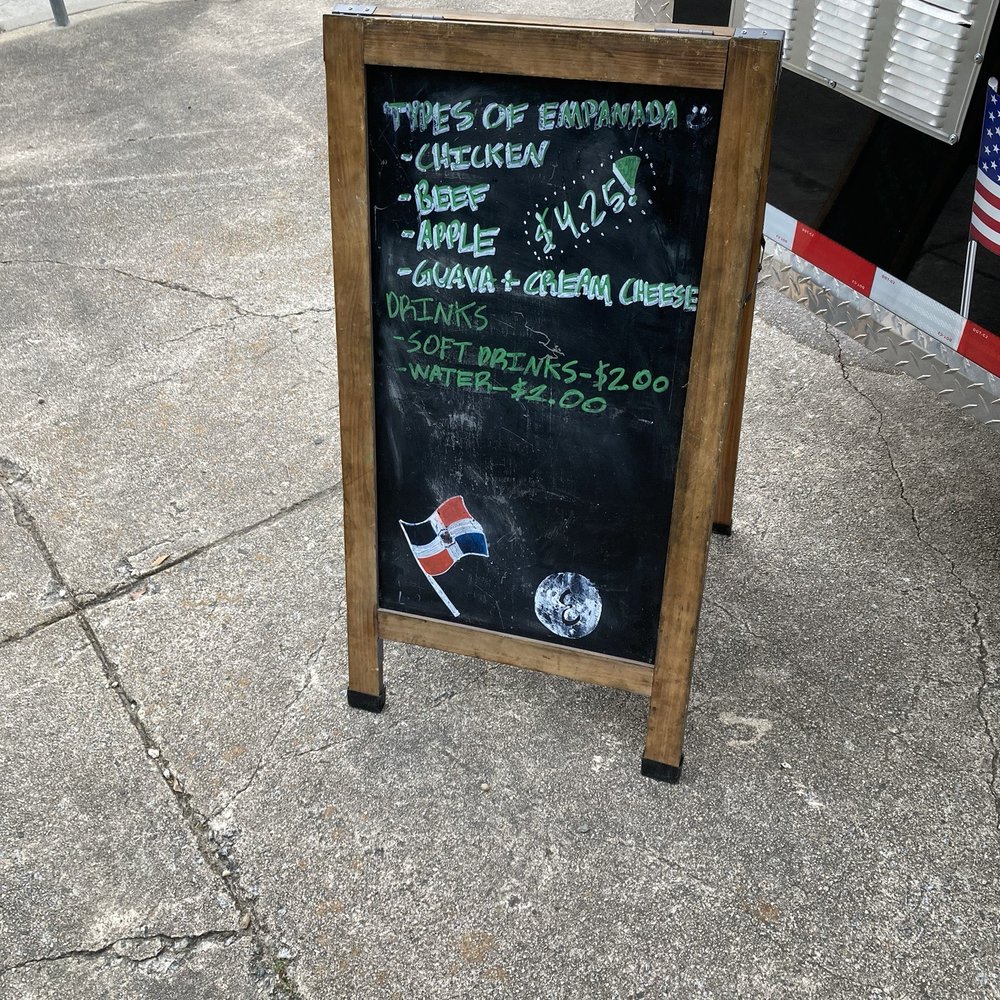 TYPES OF EMPANADA
-CHICKEN
$4.25!
-BEEF
-APPLE
-GUAVA + CREAM CHEESE
DRINKS
-SOFT DRINKS-$2.00
-WATER-$1.00